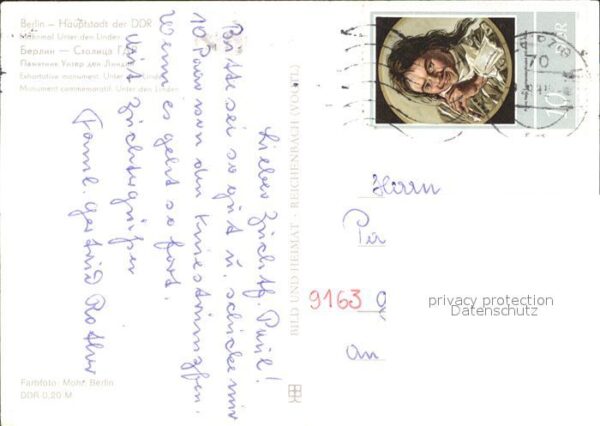 Berlin — Hauptstadt der DDR
Mahnmal Unter den Linden
Берлин — Столица ГДР
Памятник Унтер ден Линден
Exhortative monument. Unter den Linden
Monument commemoratif. Unter den Linden
Lieber Züchtfr. Paul!
Bitte sei so gut u. schicke mir
10 Paar von den Kniestrümpfen.
Wenn es geht so fort.
Mit Züchtergrüßen
Faml. Gerhard Rother
BILD UND HEIMAT · REICHENBACH (VOGTL)
Farbfoto: Mohr, Berlin
DDR 0,20 M
DDR
10
70
Herrn
9163
An
privacy protection
Datenschutz